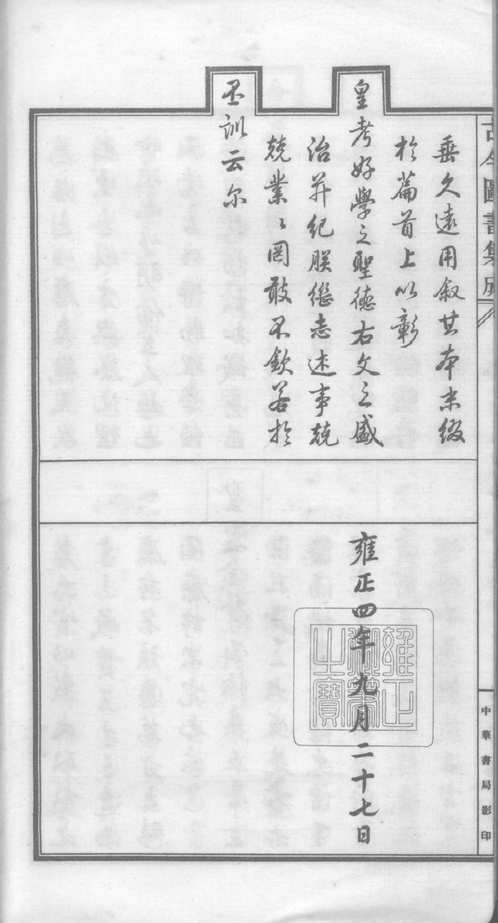 古今圖書集成
垂久遠用敘其本末綴
於篇首上以彰
皇考好學之聖德右文之盛
治并紀朕繼志述事兢
兢業業罔敢不欽若於
丕訓云尔
雍正四年九月二十七日
雍正御筆之寶
中華書局影印